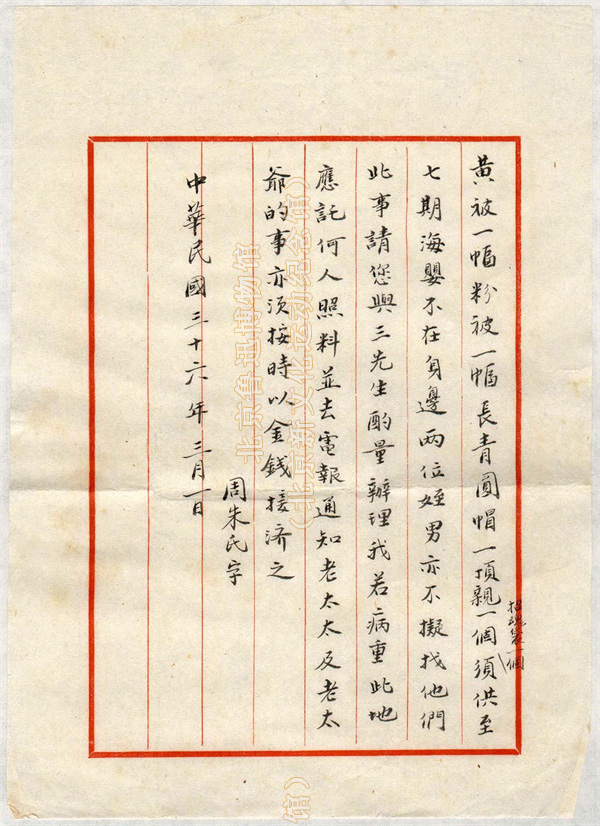 黃被一幅粉被一幅長青圓帽一頂親一個須供至
招魂袋一個
七期海嬰不在身邊两位姪男亦不擬找他們
此事請您與三先生酌量辦理我若病重此地
應託何人照料並去電報通知老太太及老太
爺的事亦須按時以金錢接济之
周朱氏字
中華民國三十六年三月一日
北京鲁迅博物馆
（北京新文化运动纪念馆）
馆）